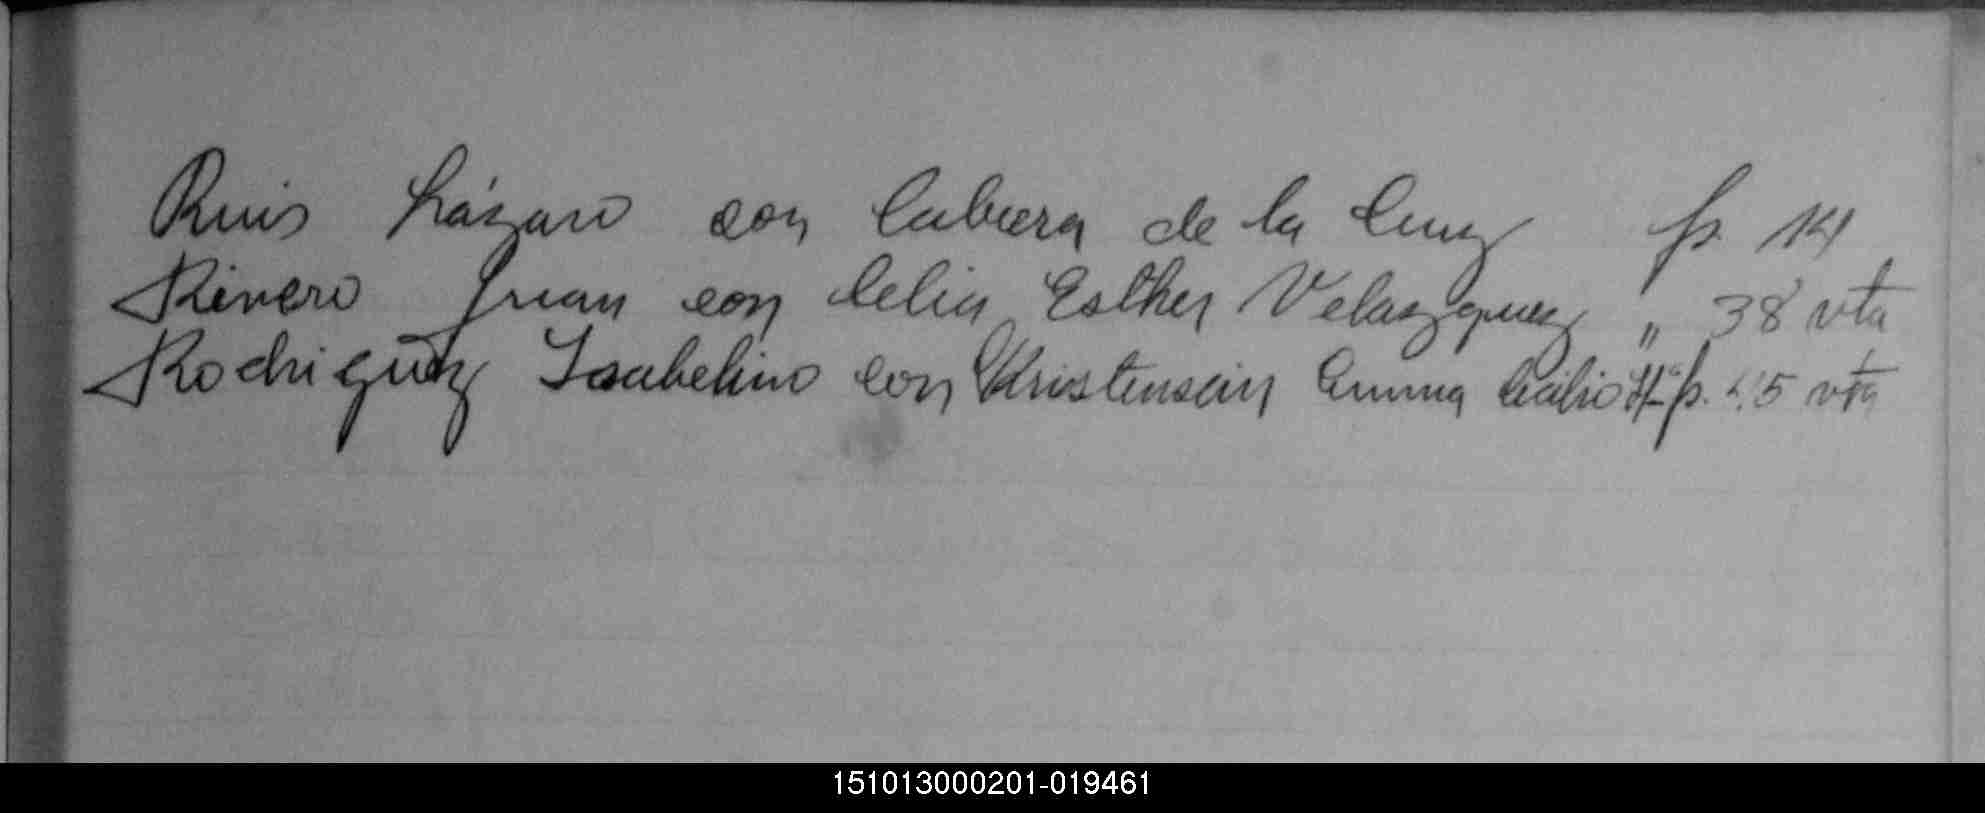 Ruis Lázaro con Cabrera de la Cruz f. 14
Rivero Juan con Celia Esther Velazquez " 38 vta
Rodriguez Isabelino con Kristensen Emma f. 45 vta
151013000201-019461